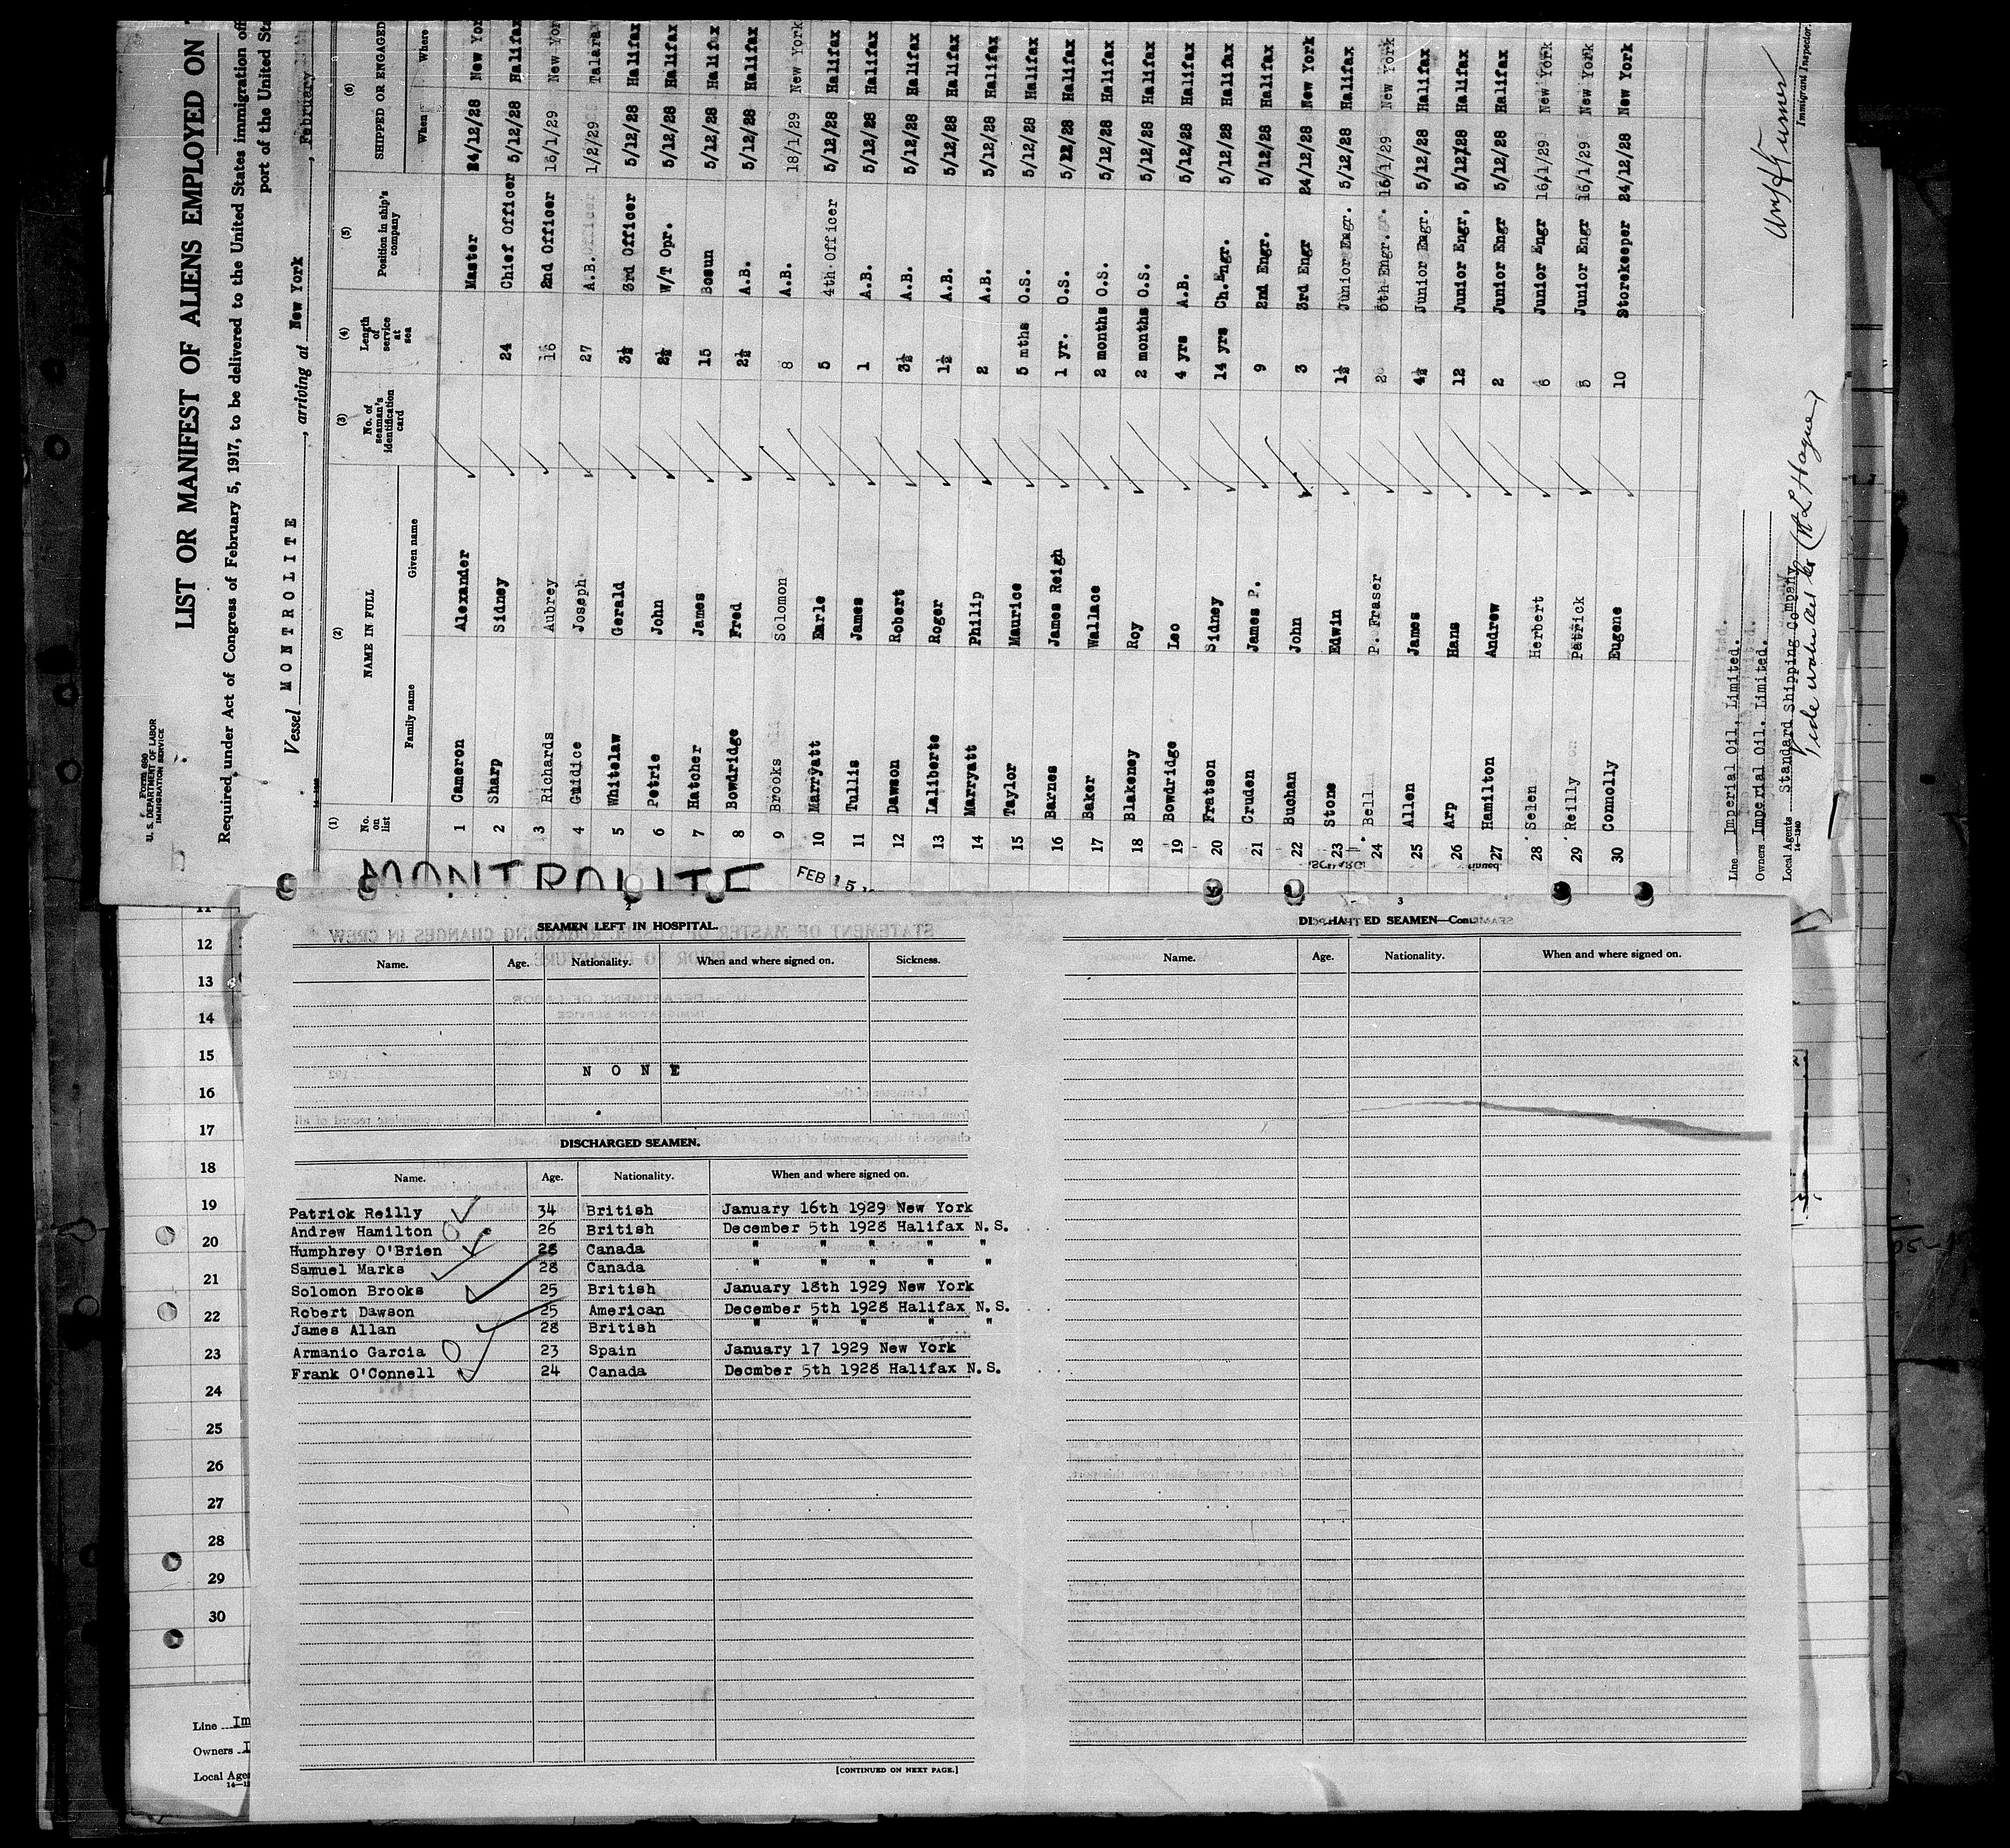 Form 690
U. S. DEPARTMENT OF LABOR
IMMIGRATION SERVICE
LIST OR MANIFEST OF ALIENS EMPLOYED ON
Required under Act of Congress of February 5, 1917, to be delivered to the United States immigration
port of the United
Vessel MONTROLITE, arriving at New York, February
(1) (2) (3) (4) (5) (6)
No. on list NAME IN FULL No. of seaman's identification card Length of service at sea Position in ship's company SHIPPED OR ENGAGED
Family name Given name When Where
1 Cameron Alexander Master 24/12/28 New Yor
2 Sharp Sidney 24 Chief Officer 5/12/28 Halifax
3 Richards Aubrey 16 2nd Officer 16/1/29 New Yor
4 Guidice Joseph 27 A.B. 1/2/29 Talara
5 Whitelaw Gerald 3½ 3rd Officer 5/12/28 Halifax
6 Petrie John 2½ W/T Opr. 5/12/28 Halifax
7 Hatcher James 15 Bosun 5/12/28 Halifax
8 Bowdridge Fred 2½ A.B. 5/12/28 Halifax
9 Brooks Solomon 8 A.B. 18/1/29 New York
10 Marryatt Earle 5 4th Officer 5/12/28 Halifax
11 Tullis James 1 A.B. 5/12/28 Halifax
12 Dawson Robert 3½ A.B. 5/12/28 Halifax
13 Laliberte Roger 1½ A.B. 5/12/28 Halifax
14 Marryatt Philip 2 A.B. 5/12/28 Halifax
15 Taylor Maurice 5 mths O.S. 5/12/28 Halifax
16 Barnes James Reigh 1 yr. O.S. 5/12/28 Halifax
17 Baker Wallace 2 months O.S. 5/12/28 Halifax
18 Blakeney Roy 2 months O.S. 5/12/28 Halifax
19 Bowdridge Leo 4 yrs A.B. 5/12/28 Halifax
20 Fratson Sidney 14 yrs Ch.Engr. 5/12/28 Halifax
21 Cruden James P. 9 2nd Engr. 5/12/28 Halifax
22 Buchan John 3 3rd Engr 24/12/28 New York
23 Stone Edwin 1½ Junior Engr. 5/12/28 Halifax
24 Bell P. Fraser 2 5th Engr. 16/1/29 New York
25 Allen James 4½ Junior Engr. 5/12/28 Halifax
26 Arp Hans 12 Junior Engr, 5/12/28 Halifax
27 Hamilton Andrew 2 Junior Engr 5/12/28 Halifax
28 Selen Herbert 6 Junior Engr 16/1/29 New York
29 Reilly Patrick 5 Junior Engr 16/1/29 New York
30 Connolly Eugene 10 Storekeeper 24/12/28 New York
Line Imperial Oil, Limited.
Owners Imperial Oil. Limited.
Local Agents Standard Shipping Company
Immigrant Inspector.
MONTROLITE
FEB 15
2
SEAMEN LEFT IN HOSPITAL.
Name. Age. Nationality. When and where signed on. Sickness.
NONE
DISCHARGED SEAMEN.
Name. Age. Nationality. When and where signed on.
Patrick Reilly 34 British January 16th 1929 New York
Andrew Hamilton 26 British December 5th 1928 Halifax N.S.
Humphrey O'Brien 28 Canada " " " " "
Samuel Marks 28 Canada " " " " "
Solomon Brooks 25 British January 18th 1929 New York
Robert Dawson 25 American December 5th 1928 Halifax N.S.
James Allan 28 British " " " " "
Armanio Garcia 23 Spain January 17 1929 New York
Frank O'Connell 24 Canada Decmber 5th 1928 Halifax N.S.
[CONTINUED ON NEXT PAGE.]
3
DISCHARGED SEAMEN—Con.
Name. Age. Nationality. When and where signed on.
11
12
13
14
15
16
17
18
19
20
21
22
23
24
25
26
27
28
29
30
Line Im
Owners I
Local Age